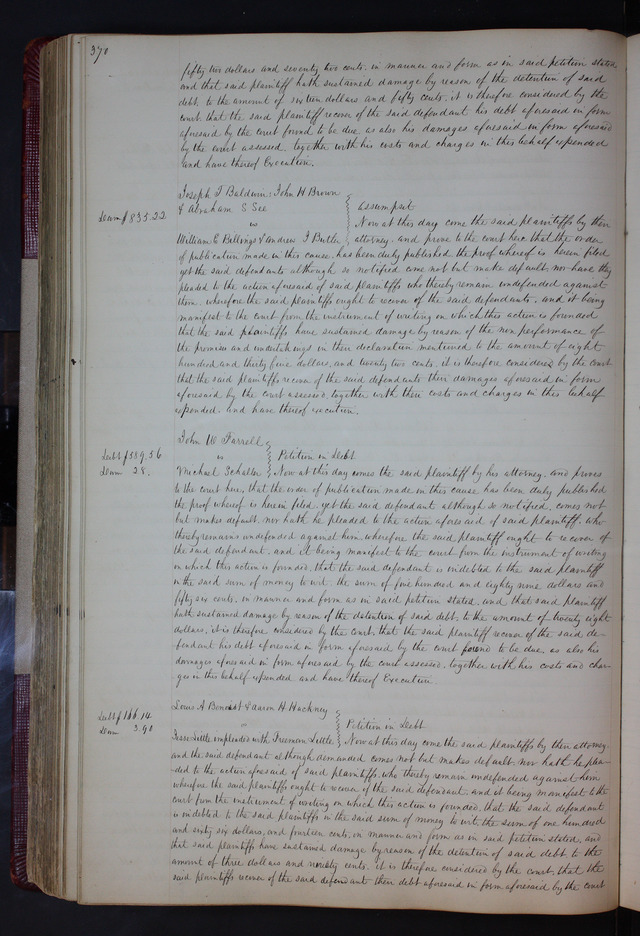 370
fifty two dollars and seventy two cents, in manner and form as in said petition stated,
and that said plaintiff hath sustained damage by reason of the detention of said
debt to the amount of sixteen dollars and fifty cents, it is therefore considered by the
court that the said plaintiff recover of the said defendant his debt aforesaid in form
aforesaid by the court found to be due as also his damages aforesaid in form aforesaid
by the court assessed, together with his costs and charges in this behalf expended
and have thereof Execution.
Joseph T Baldwin John H Brown
& Abraham S See
Assumpsit
Dam $835.22
vs
Now at this day come the said plaintiffs by their
William E Billings & Andrew J Butler
attorney, and prove to the court here, that the order
of publication made in this cause, has been duly published the proof whereof is herein filed
yet the said defendants although so notified come not but make default, nor have they
pleaded to the action aforesaid of said plaintiffs who thereby remain undefended against
them, wherefore the said plaintiffs ought to recover of the said defendants, and it being
manifest to the court from the instrument of writing on which this action is founded
that the said plaintiffs have sustained damage by reason of the non performance of
the promises and undertakings in their declaration mentioned to the amount of eight
hundred and thirty five dollars, and twenty two cents, it is therefore considered by the court
that the said plaintiffs recover of the said defendants their damages aforesaid in form
aforesaid by the court assessed, together with their costs and charges in this behalf
expended, and have thereof execution.
John W Farrell
Debt $589.56
vs
Petition in Debt
Dam 28.
Michael Schaller
Now at this day comes the said plaintiff by his attorney, and proves
to the court here, that the order of publication made in this cause has been duly published
the proof whereof is herein filed, yet the said defendant although so notified, comes not
but makes default, nor hath he pleaded to the action aforesaid of said plaintiff, who
thereby remains undefended against him, wherefore the said plaintiff ought to recover of
the said defendant, and it being manifest to the court from the instrument of writing
on which this action is founded, that the said defendant is indebted to the said plaintiff
in the said sum of money to wit the sum of five hundred and eighty nine dollars and
fifty six cents, in manner and form as in said petition stated, and that said plaintiff
hath sustained damage by reason of the detention of said debt, to the amount of twenty eight
dollars, it is therefore considered by the court, that the said plaintiff recover of the said de-
fendant his debt aforesaid in form aforesaid by the court found to be due, as also his
damages aforesaid in form aforesaid by the court assessed, together with his costs and char-
ges in this behalf expended and have thereof Execution.
Louis A Benoist & Aaron H Hackney
Debt $166.14
Petition in Debt
Dam 3.90
Jesse Little impleaded with Freeman Little
Now at this day come the said plaintiffs by their attorney
and the said defendant although demanded comes not but makes default, nor hath he plea-
ded to the action aforesaid of said plaintiffs, who thereby remain undefended against him
wherefore the said plaintiffs ought to recover of the said defendant, and it being manifest to the
court from the instrument of writing on which this action is founded, that the said defendant
is indebted to the said plaintiffs in the said sum of money to wit the sum of one hundred
and sixty six dollars, and fourteen cents, in manner and form as in said petition stated, and
that said plaintiffs have sustained damage by reason of the detention of said debt to the
amount of three dollars and ninety cents, it is therefore considered by the court, that the
said plaintiffs recover of the said defendant their debt aforesaid in form aforesaid by the court